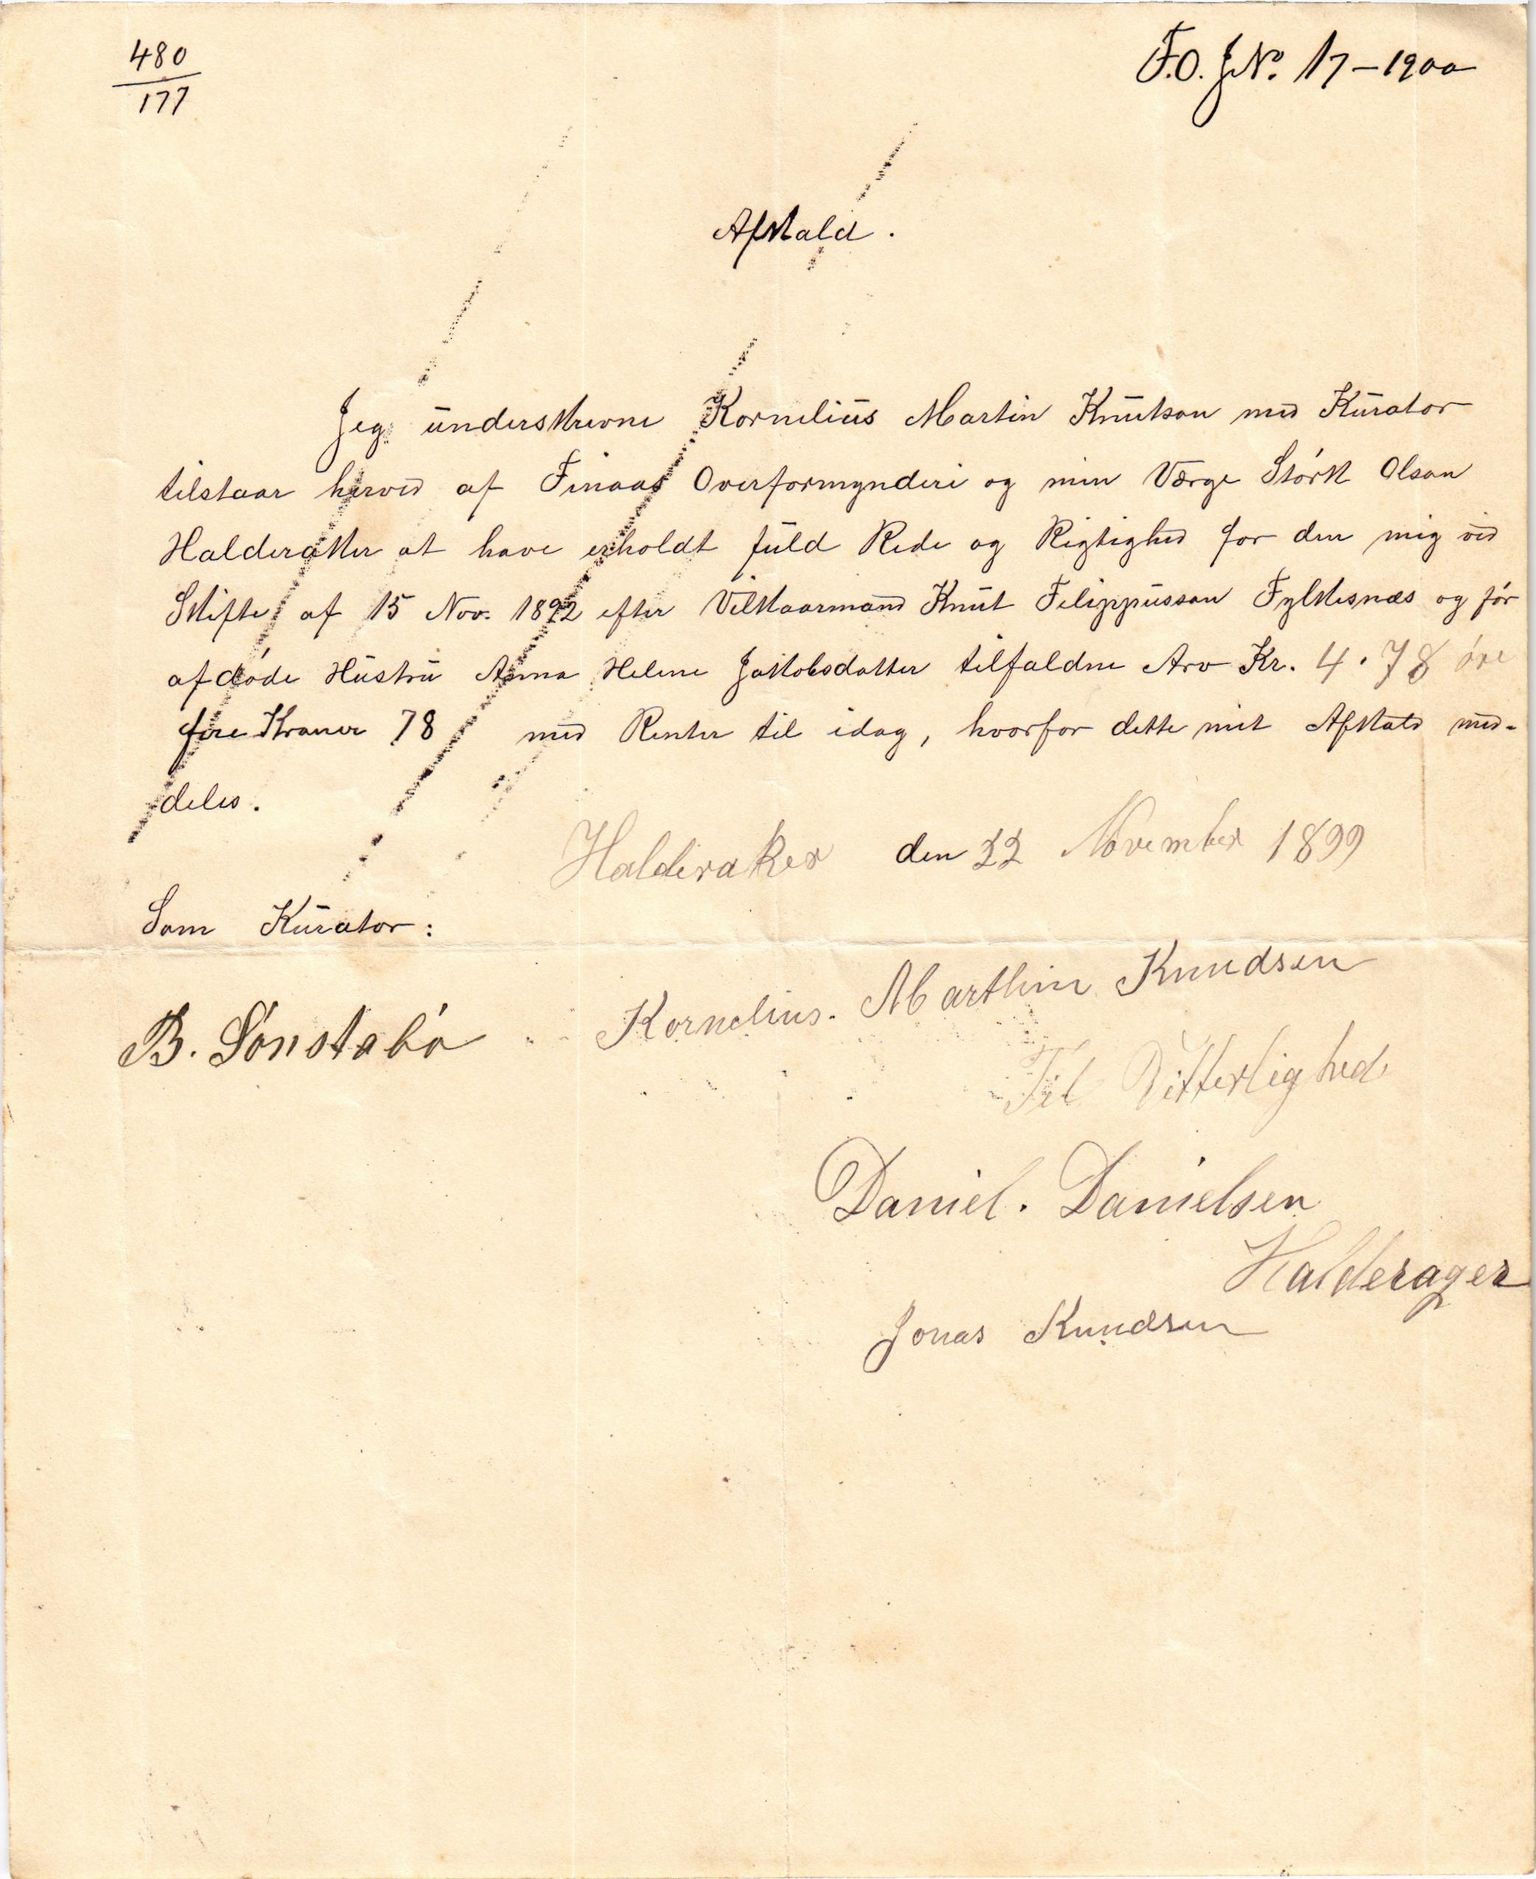 480
177
F.O. J№. 17-1900
Afkald.
Jeg underskrevne Kornelius Martin Knutson med Kurator
tilstaar herved af Finaas Overformynderi og min Værge Størk Olson
Halderaker at have erholdt fuld Rede og Rigtighed for den mig ved
Skifte af 15 Nov. 1892 efter Vilkaarmand Knut Filippusson Fylkesnæs og før
afdøde Hustru Anna Helene Jakobsdatter tilfaldne Arv Kr. 4.78 øre
fire Kroner 78 med Renter til idag, hvorfor dette mit Afkald med-
deles.
Halderaker den 22 November 1899
Som Kurator:
B. Sønstabø
Kornelius. Marthin Knudsen
Til Vitterlighed
Daniel. Danielsen
Halderager
Jonas Knudsen